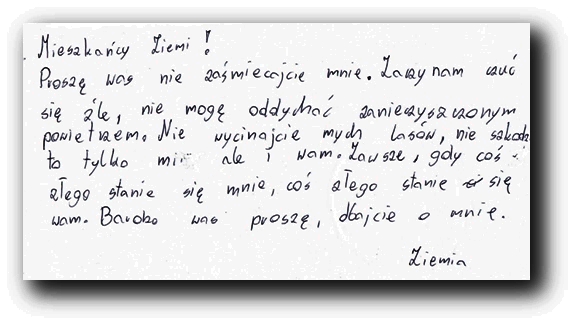 Mieszkańcy Ziemi!
Proszę was nie zaśmiecajcie mnie. Zaczynam czuć
się źle, nie mogę oddychać zanieczyszczonym
powietrzem. Nie wycinajcie mych lasów, nie szkodz
to tylko mi ale i wam. Zawsze, gdy coś
złego stanie się mnie, coś złego stanie się
wam. Bardzo was proszę, dbajcie o mnie.
Ziemia